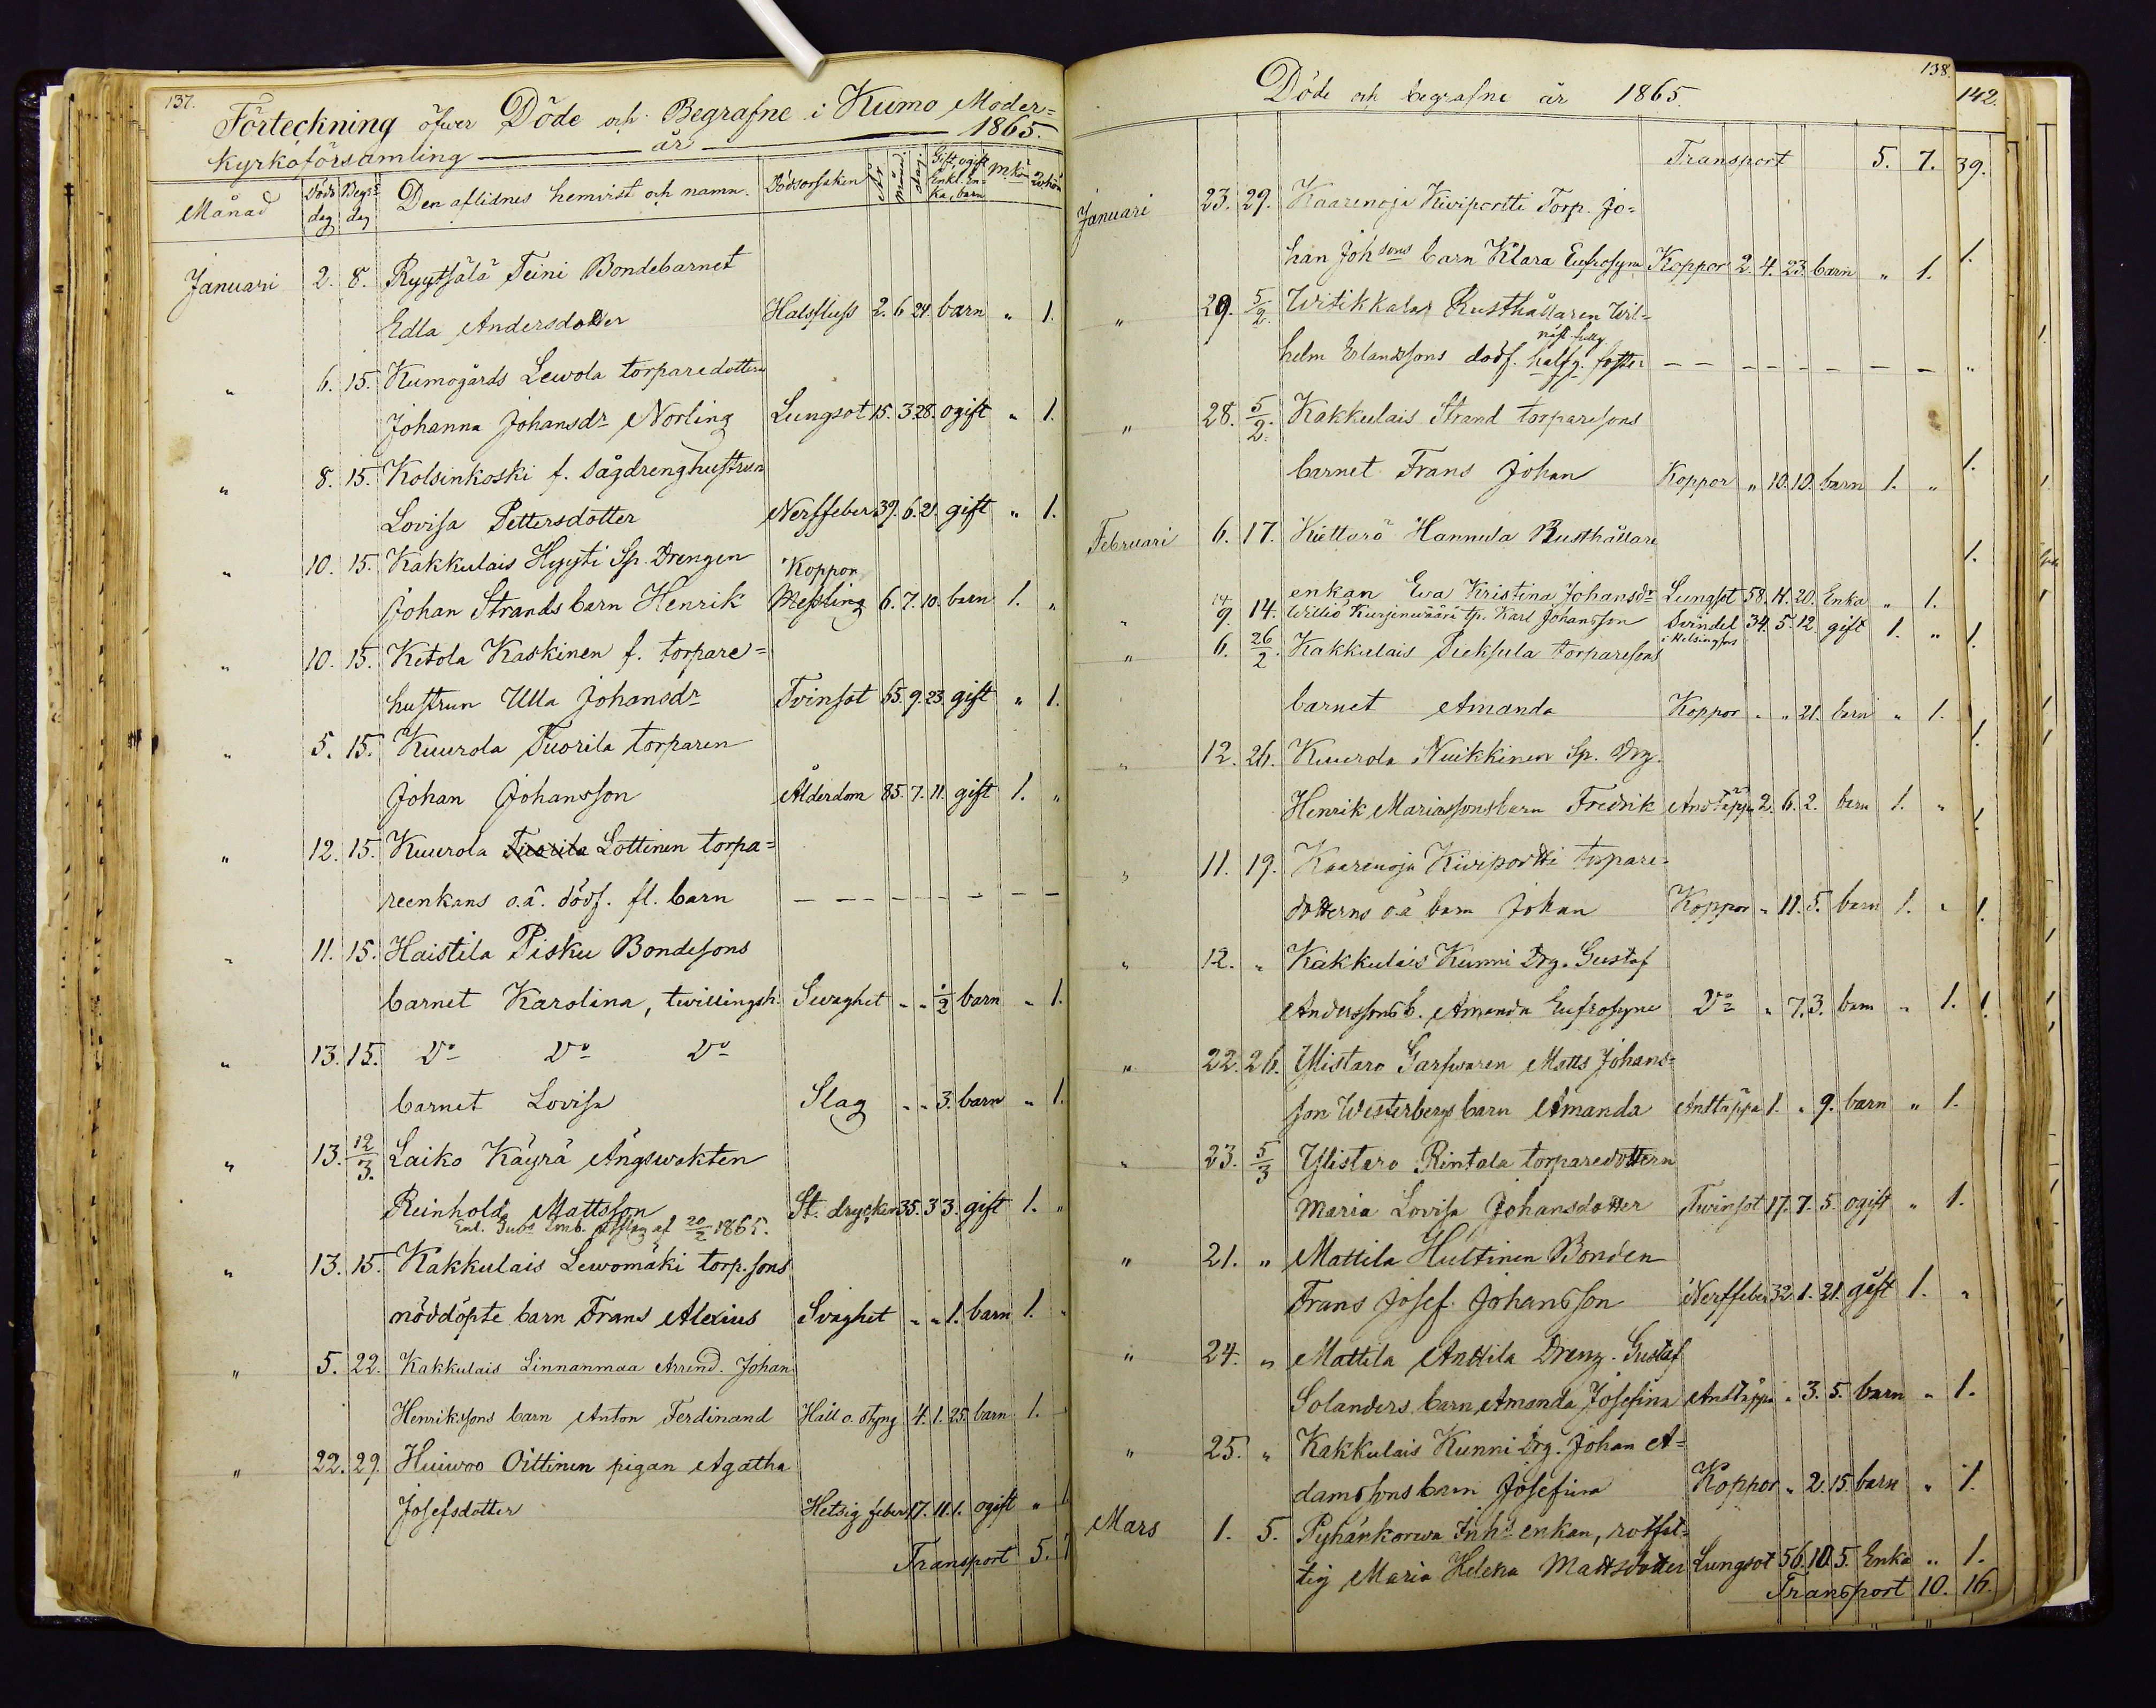 137.
Förteckning öfwer Döde och Begrafne i Kumo Moder=
kyrkoförsamling — år — 1865.
Månad Döds dag Begr: dag Den aflidnes hemvist och namn. Dödsorsaken År Månad Dag Gift, ogift Enkl. En= ka, barn M.kön Q.kön
Januari 2. 8. Ryytsälä Teini Bondebarnet
Edla Andersdotter Halsfluss 2. 6 24. barn " 1.
" 6. 15. Kumogårds Lewola torparedottern
Johanna Johansdr Norling Lungsot 15. 3. 28. ogift " 1.
" 8. 15. Kolsinkoski f. Sågdrenghustrun
Lovisa Pettersdotter Nerffeber 39. 6. 21. gift " 1.
" 10. 15. Kakkulais Hyyti Sp. Drengen Koppor
Johan Strands barn Henrik Messling 6. 7. 10. barn 1. "
" 10. 15. Ketola Kaskinen f. torpare=
hustrun Ulla Johansdr Tvinsot 65. 9. 23. gift " 1.
" 5. 15. Kuurola Tuorila torparen
Johan Johansson Ålderdom 85. 7. 11. gift 1. "
" 12. 15. Kuurola Tuorila Lottinen torpa=
reenkans o.ä. dödf. fl. barn — — — — — — — —
" 11. 15. Haistila Pisku Bondesons
barnet Karolina, twillingsb. Swaghet " " 1/2 barn " 1.
" 13. 15. Do Do Do
barnet Lovisa Slag " " 3. barn " 1.
" 13. 12/3. Laiko Käyrä Ängswakten
Reinhold Mattsson St. drycken 35. 3 3. gift 1. "
Enl. Guvs Emb. utslag af 20/2 1865.
" 13. 15. Kakkulais Lewomäki torp.sons
nöddöpte barn Frans Alexius Svaghet " " 1. barn 1. "
" 5. 22. Kakkulais Linnanmaa Arrend. Johan
Henrikssons barn Anton Ferdinand Håll o. styng 4. 1. 25. barn 1.
" 22. 29. Huiwoo Oittinen pigan Agatha
Josefsdotter Hetsig feber 17. 11. 1. ogift " 1
Transport 5. 7
138.
Döde och begrafne år 1865.
Transport 5. 7.
Januari 23. 29. Kaarenoja Kiviportti Torp. Jo=
han Johsons barn Klara Eufrosyna Koppor 2. 4. 23. barn " 1.
" 29. 5/2. Witikkalas Rusthållaren Wil=
helm Erlandssons dödf. halfg. foster — — — — — — — —
" 28. 5/2. Kakkulais Strand torparesons
barnet Frans Johan Koppor " 10. 19. barn 1. "
Februari 6. 17. Kiettarö Hannula Rusthållare
enkan Eva Kristina Johansdr Lungsot 58. 11. 20. Enka " 1.
" 9. 14. Willio Kurjenwäärä tp. Karl Johansson Svindel i Helsingfors 34. 5. 12. gift 1. "
" 6. 26/2. Kakkulais Peeksula torparesons
barnet Amanda Koppor " " 21. barn " 1.
" 12. 26. Kuurola Nuikkinen Sp. Drg.
Henrik Mariassons barn Fredrik Andtäppa 2. 6. 2. barn 1. "
" 11. 19. Kaarenoja Kiviportti torpare=
dotterns o.ä barn Johan Koppor " 11. 5. barn 1. "
" 12. " Kakkulais Kunni Drg. Gustaf
Anderssons b. Amanda Eufrosyne Do " 7. 3. barn " 1.
" 22. 26. Ylistaro Garfwaren Matts Johans=
son Westerbergs barn Amanda Andtäppa 1. " 9. barn " 1.
" 23. 5/3 Ylistaro Rintala torparedottern
Maria Lovisa Johansdotter Twinsot 17. 7. 5. ogift " 1.
" 21. " Mattila Hultinen Bonden
Frans Josef Johansson Nerffeber 32. 1. 21. gift 1. "
" 24. " Mattila Anttila Dreng. Gustaf
Solanders barn Amanda Josefina Andtäppa " 3. 5. barn " 1.
" 25. " Kakkulais Kunni Drg. Johan A=
damssons barn Josefina Koppor " 2. 15. barn " 1.
Mars 1. 5. Pyhänkorwa Inhs enkan, rotfat=
tig Maria Helena Mattsdotter Lungsot 56. 10. 5. Enka " 1.
Transport 10. 16.
142.
39.